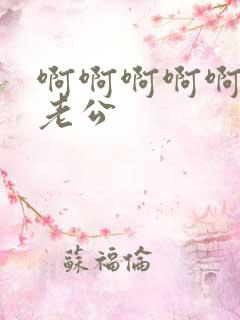 啊啊啊啊啊
老公
蘇福倫